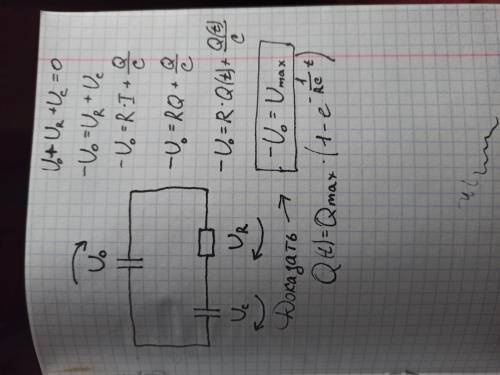 U₀ + U_R + U_C = 0
-U₀ = U_R + U_C
-U₀ = R · I + Q/C
-U₀ = RQ + Q/C
-U₀ = R · Q(t) + Q(t)/C
-U₀ = U_max
U₀
U_C
U_R
Доказать →
Q(t) = Q_max · (1 - e^(-1/RC t))